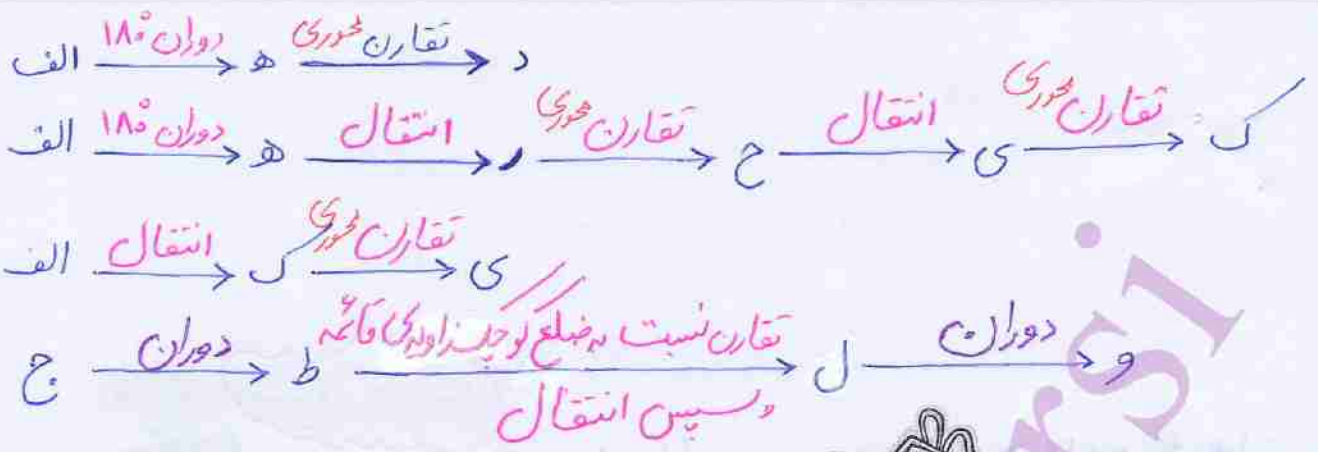 الف دوران ۱۸۰° ه تقارن محوری د
الف دوران ۱۸۰° ه انتقال ر تقارن محوری ح انتقال ی تقارن محوری ک
الف انتقال ک تقارن محوری ی
ج دوران ط تقارن نسبت به ضلع کوچک زاویه‌ی قائمه ل دوران و
و سپس انتقال
rsi